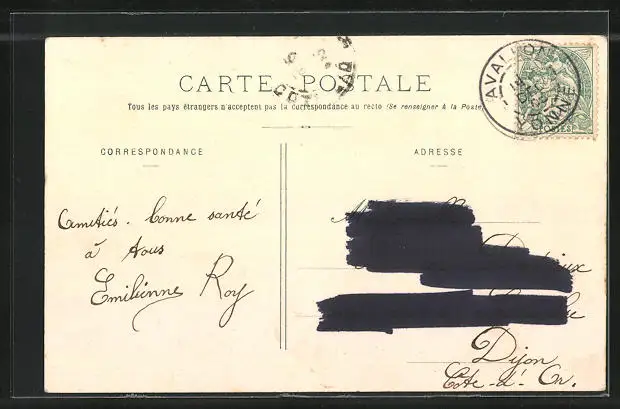 CARTE POSTALE
Tous les pays étrangers n'acceptent pas la correspondance au recto (Se renseigner à la Poste)
CORRESPONDANCE
ADRESSE
AVALLON
YONNE
POSTES
Amitiés. bonne santé
à tous
Emilienne Roy
Dijon
Côte-d'Or.